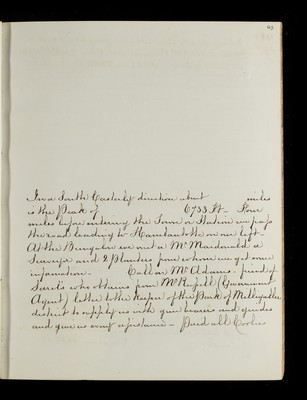 In a South Easterly direction about miles
is the Peak of 6733 Ft. Four
miles before entering the Town or Station we pass
the road leading to Hambantotte on our left.
At the Bungalow we met a Mr Macdonald a
Surveyor and 2 planters from whom we got some
information. Call on Mr Adams friend of
who obtains from Mr (Government
Agent) letter to the Keeper of the Park of
district to supply us with gun bearers and guides
and give us every assistance - Paid all Coolies